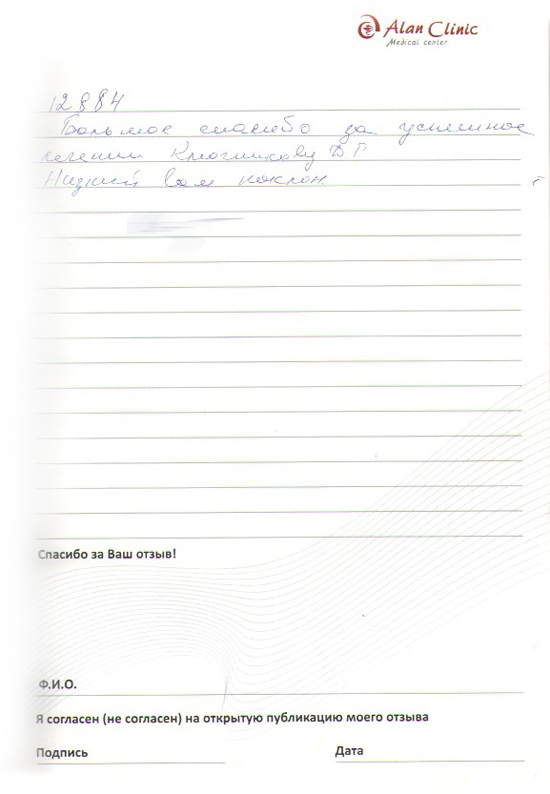 Alan Clinic
Medical center
12884
Большое спасибо за успешное
лечение Ключникову Д Г
Низкий вам поклон.
Спасибо за Ваш отзыв!
Ф.И.О.
Я согласен (не согласен) на открытую публикацию моего отзыва
Подпись Дата